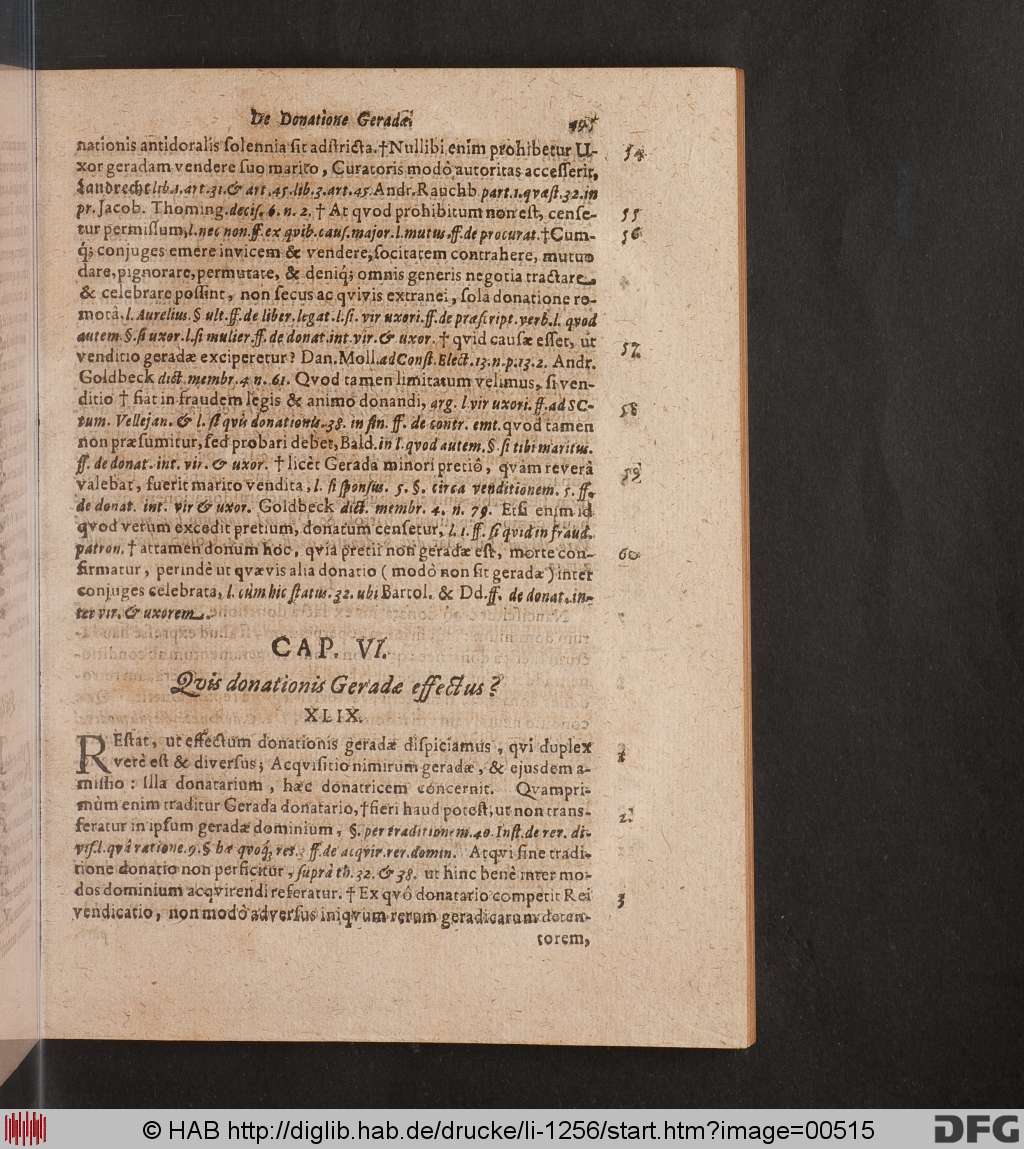 De Donatione Geradæ.
nationis antidoralis solennia sit adstricta. † Nullibi enim prohibetur U- 54
xor geradam vendere suo marito, Curatoris modò autoritas accesserit,
Landrecht lib. 1. art. 31. & art. 45. lib. 3. art. 45. Andr. Rauchb part. 1. qvæst. 32. in
pr. Jacob. Thoming. decis. 6. n. 2. † At qvod prohibitum non est, cense- 55
tur permissum, l. nec non. ff. ex qvib. caus. major. l. mutus. ff. de procurat. † Cum- 56
q; conjuges emere invicem & vendere, socitatem contrahere, mutuo
dare, pignorare, permutate, & deniq; omnis generis negotia tractare
& celebrare possint, non secus ac qvivis extranei, sola donatione re-
mota, l. Aurelius. § ult. ff. de liber. legat. l. si. vir uxori. ff. de præscript. verb. l. qvod
autem. §. si uxor. l. si mulier. ff. de donat. int. vir. & uxor. † qvid causæ esset, ut
venditio geradæ exciperetur? Dan. Moll. ad Const. Elect. 13. n. p. 13. 2. Andr. 57
Goldbeck dict. membr. 4 n. 61. Qvod tamen limitatum velimus, si ven-
ditio † fiat in fraudem legis & animo donandi, arg. l. vir uxori. ff. ad SC- 58
tum. Vellejan. & l. si qvis donationis. 38. in fin. ff. de contr. emt. qvod tamen
non præsumitur, sed probari debet, Bald. in l. qvod autem. §. si tibi maritus.
ff. de donat. int. vir. & uxor. † licèt Gerada minori pretiô, qvàm reverâ 59
valebat, fuerit marito vendita, l. si sponsus. 5. §. circa venditionem. 5. ff.
de donat. int. vir & uxor. Goldbeck dict. membr. 4. n. 79. Etsi enim id
qvod verum excedit pretium, donatum censetur, l. 1. ff. si qvid in fraud.
patron. † attamen donum hoc, qvia pretii non geradæ est, morte con- 60
firmatur, perindè ut qvævis alia donatio (modò non sit geradæ) inter
conjuges celebrata, l. cùm hic status. 32. ubi Bartol. & Dd. ff. de donat. in-
ter vir. & uxorem.
CAP. VI.
Qvis donationis Geradæ effectus?
XLIX.
REstat, ut effectum donationis geradæ dispiciamus, qvi duplex
verè est & diversus; Acqvisitio nimirum geradæ, & ejusdem a-
missio: Illa donatarium, hæc donatricem concernit. Qvampri-
mùm enim traditur Gerada donatario, † fieri haud potest, ut non trans- 2
feratur in ipsum geradæ dominium, §. per traditionem. 40. Inst. de rer. di-
vis. l. qvâ ratione. 9. § hæ qvoq; res. ff. de acqvir. rer. domin. Atqvi sine tradi-
tione donatio non perficitur, suprà th. 32. & 38. ut hinc benè inter mo-
dos dominium acqvirendi referatur. † Ex qvô donatario competit Rei 3
vendicatio, non modò adversus iniqvum rerum geradicarum deten-
torem,
© HAB http://diglib.hab.de/drucke/li-1256/start.htm?image=00515
DFG